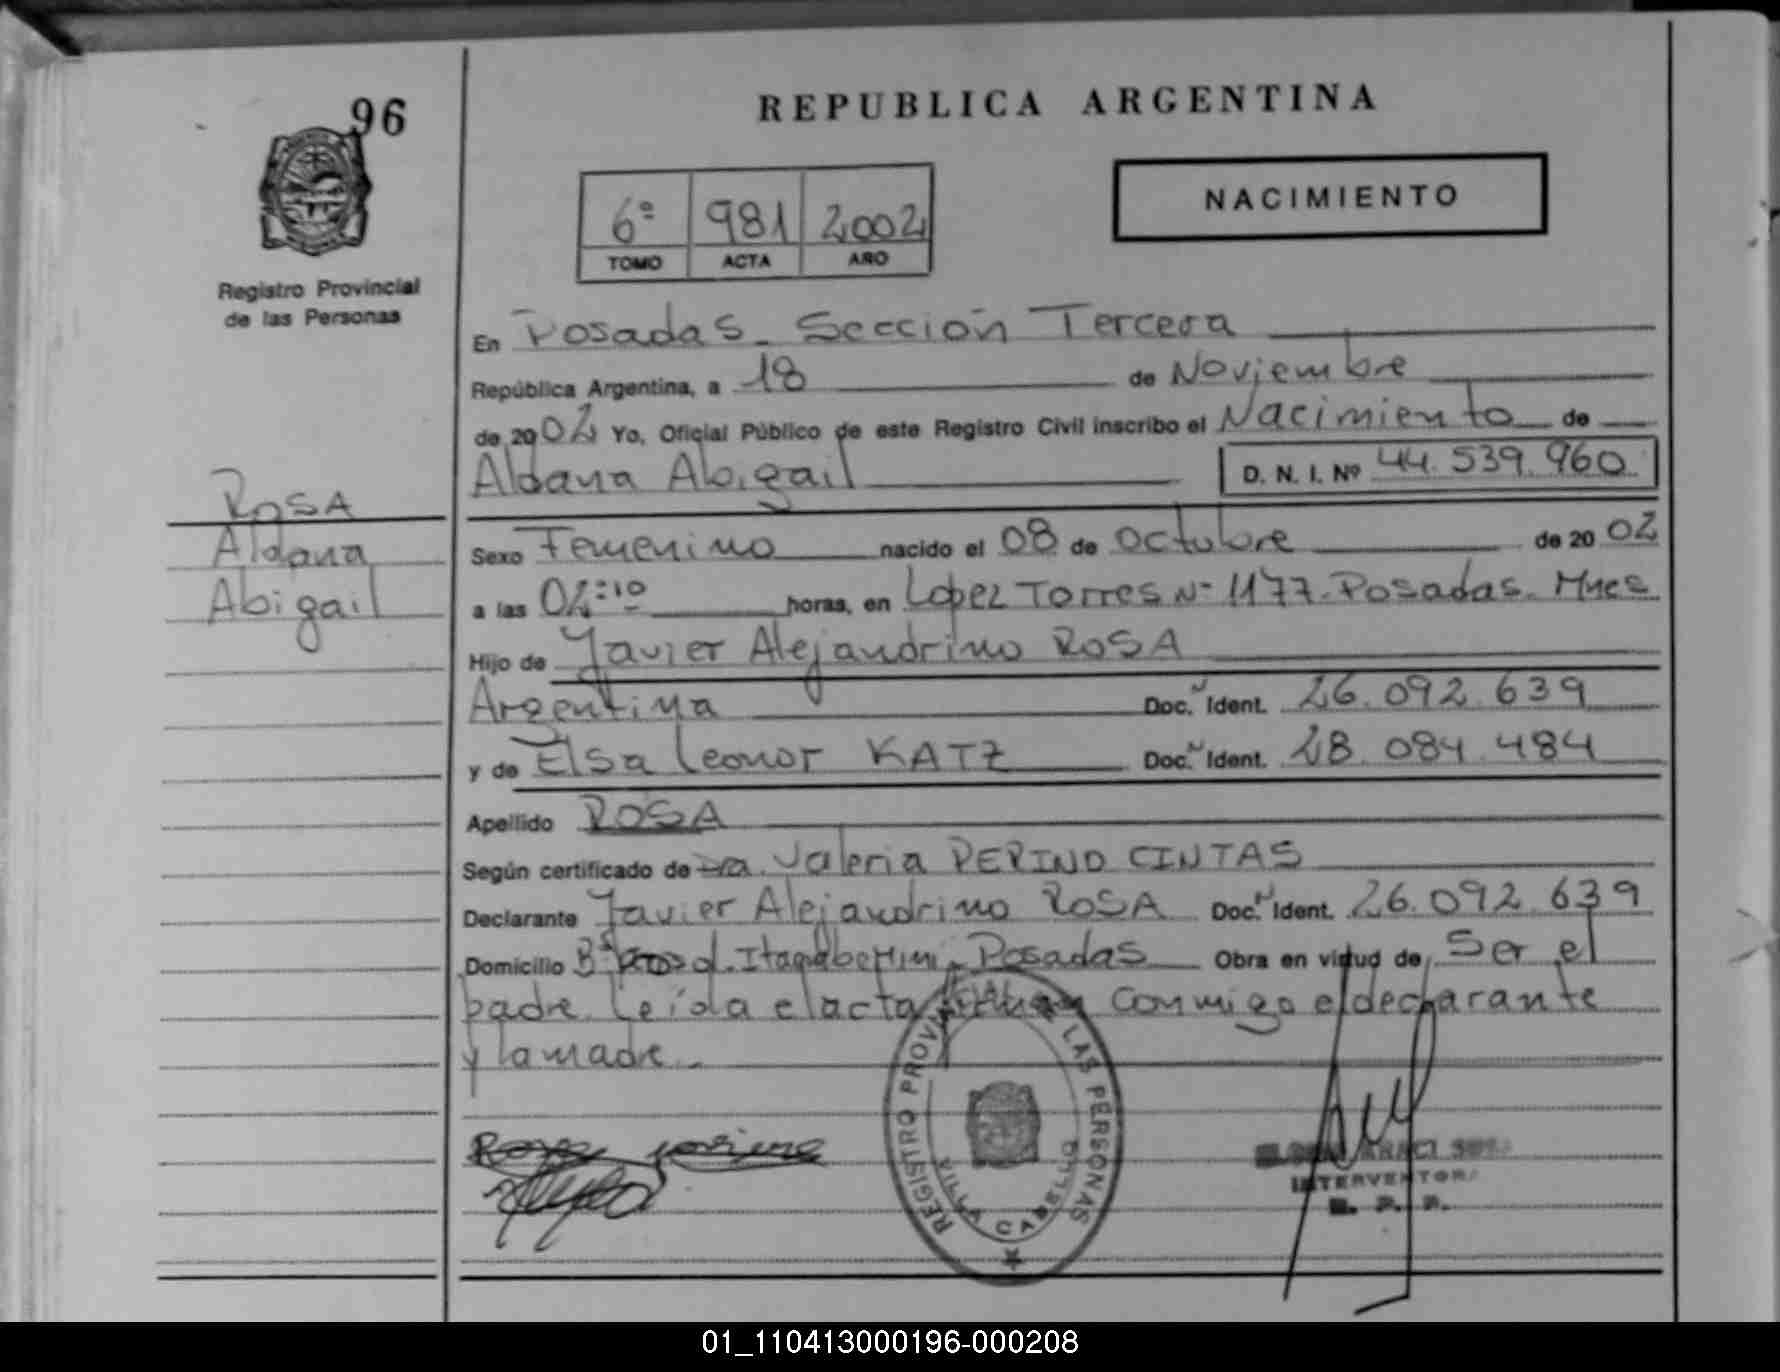 96
REPUBLICA ARGENTINA
6º 981 2002
TOMO ACTA AÑO
NACIMIENTO
Registro Provincial
de las Personas
En Posadas - Sección Tercera
República Argentina, a 18 de Noviembre
de 2002 Yo, Oficial Público de este Registro Civil inscribo el Nacimiento de
Aldana Abigail D. N. I. Nº 44.539.960
ROSA
Aldana
Abigail
Sexo Femenino nacido el 08 de Octubre de 2002
a las 02:10 horas, en Lopez Torres Nº 1177 - Posadas - Mnes
Hijo de Javier Alejandrino ROSA
Argentina Doc. N Ident. 26.092.639
y de Elsa Leonor KATZ Doc. N Ident. 28.084.484
Apellido ROSA
Según certificado de Dra. Valeria PERINO CINTAS
Declarante Javier Alejandrino ROSA Doc. N Ident. 26.092.639
Domicilio Bº Posadas Obra en virtud de Ser el
padre. Leída el acta conmigo el declarante
y la madre.-
REGISTRO PROVINCIAL DE LAS PERSONAS
VILLA CABELLO
INTERVENTORA
R. P. P.
01_110413000196-000208